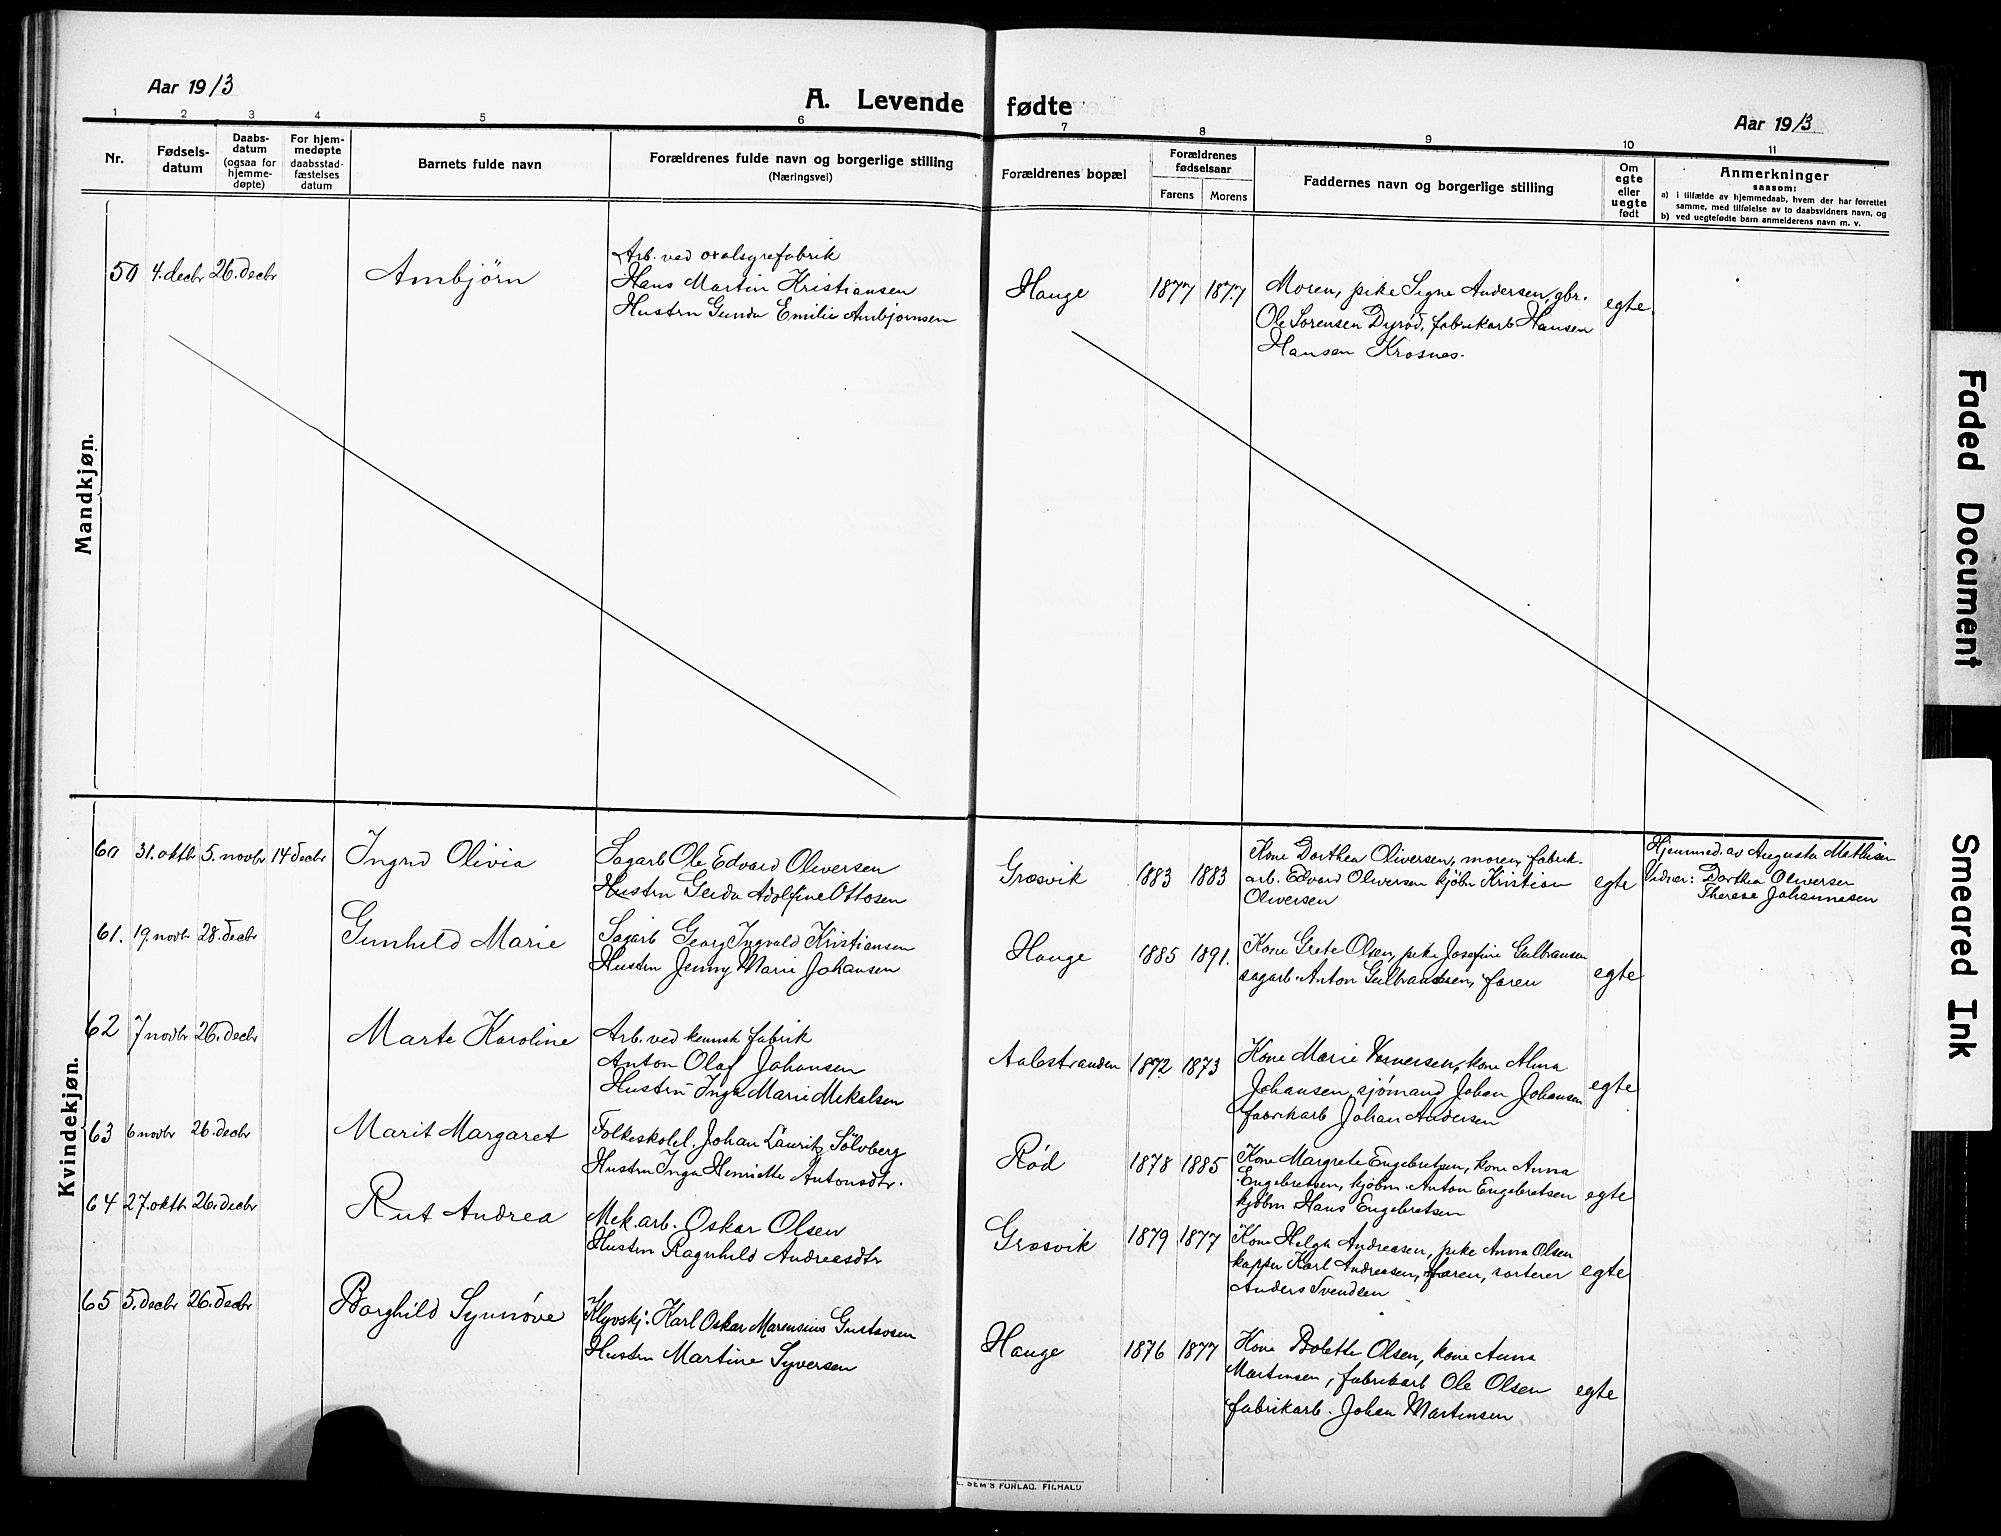 Aar 1913
A. Levende fødte
Aar 1913
1 2 3 4 5 6 7 8 9 10 11
Nr.
Fødselsdatum
Daabsdatum (ogsaa for hjemmedøpte)
For hjemmedøpte daabsstadfæstelses datum
Barnets fulde navn
Forældrenes fulde navn og borgerlige stilling
(Næringsvei)
Forældrenes bopæl
Forældrenes fødselsaar
Farens Morens
Faddernes navn og borgerlige stilling
Om egte eller uegte født
Anmerkninger
saasom:
a) i tilfælde av hjemmedaab, hvem der har forrettet
samme, med tilføielse av to daabsvidners navn, og
b) ved uegtefødte barn anmelderens navn m. v.
Mandkjøn.
50 4. decbr 26. decbr
Ambjørn
Arb. ved oxalsyrefabrik
Hans Martin Kristiansen
Hustru Gunda Emilie Ambjørnsen
Hauge 1877 1877
Moren, pike Signe Andersen, gbr.
Ole Sørensen Dyrød, fabrikarb Hansen
Hansen Krosnes.
egte
Kvindekjøn.
60 31. oktbr 5. novbr 14 decbr
Ingrid Olivia
Sagarb Ole Edvard Oliversen
Hustru Gerda Adolfine Ottosen
Græsvik 1883 1883
Kone Dorthea Oliversen, moren, fabrik-
arb. Edvard Oliversen kjøbm Kristian
Oliversen
egte
Hjemmed. av Augusta Mathisen
Vidner: Dorthea Oliversen
Therese Johannesen
61. 19. novbr 28. decbr
Gunhild Marie
Sagarb Georg Ingvald Kristiansen
Hustru Jenny Marie Johansen
Hauge 1885 1891.
Kone Grete Olsen, pike Josefine Gulbransen
sagarb. Anton Gulbrandsen, faren
egte
62 7 novbr 26. decbr
Marte Karoline
Arb. ved kemisk fabrik
Anton Olaf Johansen
Hustru Inga Marie Mekalsen
Aalestranden 1872 1873
Kone Marie kone Alma
Johansen, sjømand Johan Johansen
fabrikarb Johan Andersen
egte
63 6 novbr 26. decbr
Marit Margaret
Folkeskolel. Johan Lauritz Sølvberg
Hustru Inga Henriette Antonsdtr.
Rød 1878 1885
Kone Margrete Engebretsen, kone Anna
Engebretsen, kjøbm. Anton Engebretsen
kjøbm Hans Engebretsen
egte
64 27. oktbr 26. decbr
Rut Andrea
Mek. arb. Oskar Olsen
Hustru Ragnhild Andreasdtr
Græsvik 1879 1877
Kone Helga Andreasen, pike Anna Olsen
kapper Karl Andreasen, faren, sorterer
Anders Svendsen
egte
65 5. decbr 26. decbr
Borghild Synnøve
Klyvskj. Karl Oskar Marensius Gustavsen
Hustru Martine Syversen
Hauge 1876 1877
Kone Bolette Olsen, kone Anna
Martinsen, fabrikarb Ole Olsen
fabrikarb. Johan Martinsen
egte
SEM'S FORLAG, F.HALD
Faded Document
Smeared Ink